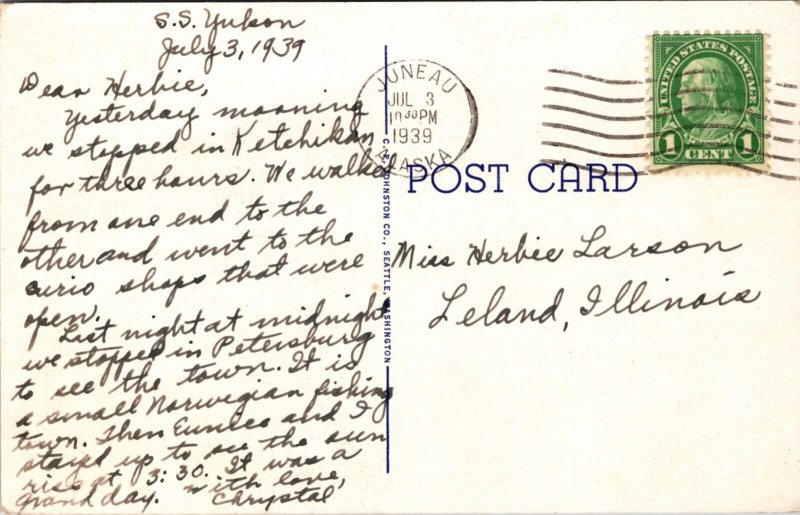 S.S. Yukon
July 3, 1939
Dear Herbie,
Yesterday morning
we stopped in Ketchikan
for three hours. We walked
from one end to the
other and went to the
curio shops that were
open.
Last night at midnight
we stopped in Petersburg
to see the town. It is
a small Norwegian fishing
town. Then Eunice and I
stayed up to see the sun
rise at 3:30. It was a
grand day. With love,
Chrystal
C. P. JOHNSTON CO., SEATTLE, WASHINGTON
JUNEAU
JUL 3
10 30 PM
1939
ALASKA
UNITED STATES POSTAGE
FRANKLIN
1 CENT 1
POST CARD
Miss Herbie Larson
Leland, Illinois